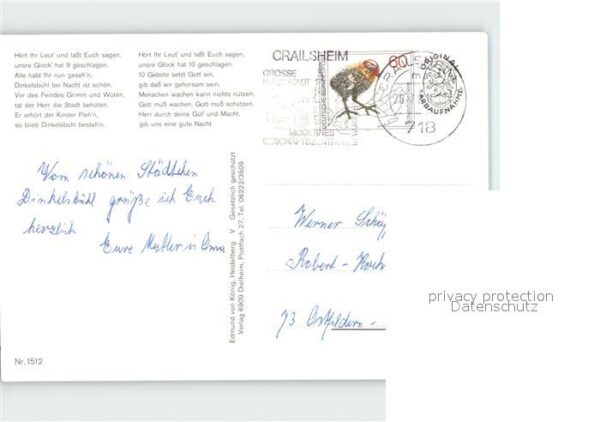 Hört Ihr Leut' und laßt Euch sagen,
unsre Glock' hat 9 geschlagen.
Alle habt Ihr nun geseh'n,
Dinkelsbühl bei Nacht ist schön.
Vor des Feindes Grimm und Wüten,
tat der Herr die Stadt behüten.
Er erhört der Kinder Fleh'n,
so blieb Dinkelsbühl besteh'n.
Hört Ihr Leut' und laßt Euch sagen,
unsre Glock hat 10 geschlagen.
10 Gebote setzt Gott ein,
gib daß wir gehorsam sein.
Menschen wachen kann nichts nützen,
Gott muß wachen, Gott muß schützen.
Herr durch deine Güt' und Macht
gib uns eine gute Nacht.
CRAILSHEIM
GROSSE
MODERNES
GESCHÄFTSZENTRUM
60
718
ORIGINAL
FARBAUFNAHME
Vom schönen Städtchen
Dinkelsbühl grüße ich Euch
herzlich
Eure Mutter u. Oma
Edmund von König, Heidelberg V Gesetzlich geschützt
Verlag 6909 Dielheim, Postfach 27, Tel. 06222/3509
Werner
Robert-Koch
73 Ostfildern-
Nr. 1512
privacy protection
Datenschutz